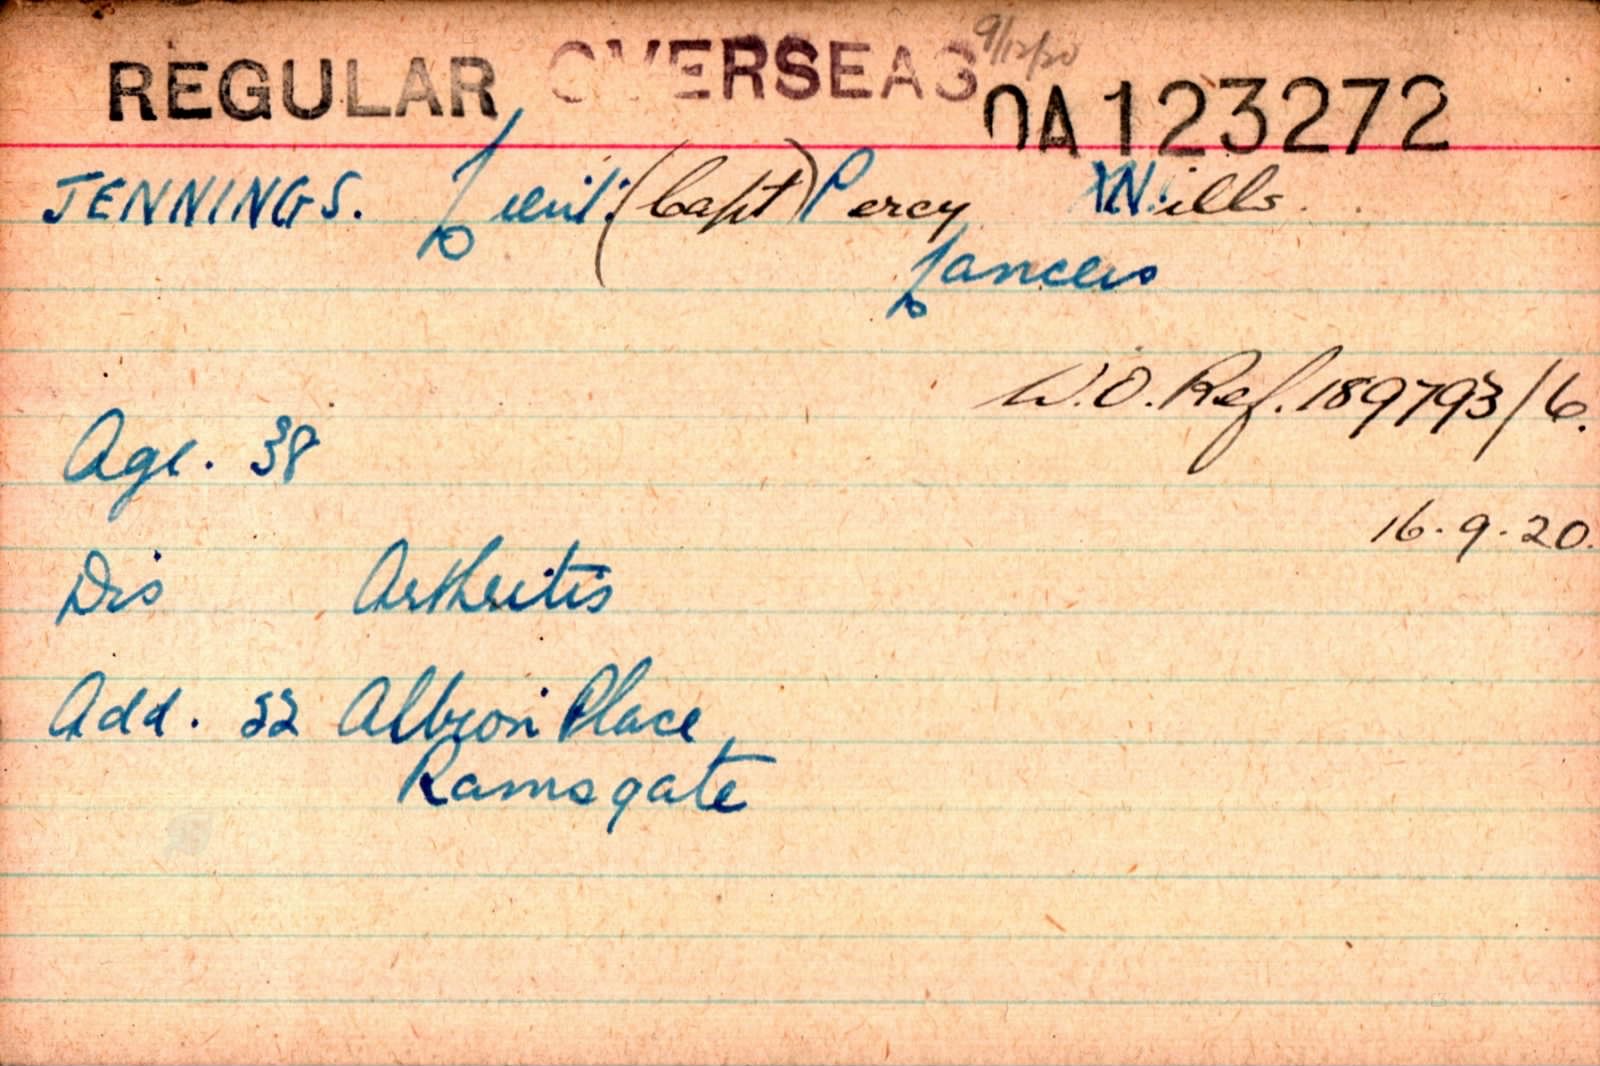 REGULAR OVERSEAS 9/12/20 OA123272
JENNINGS. Lieut: (Capt) Percy Wills.
Lancers
W.O. Ref. 189793/6.
Age. 38
16.9.20.
Dis Arthritis
Add. 22 Albion Place
Ramsgate